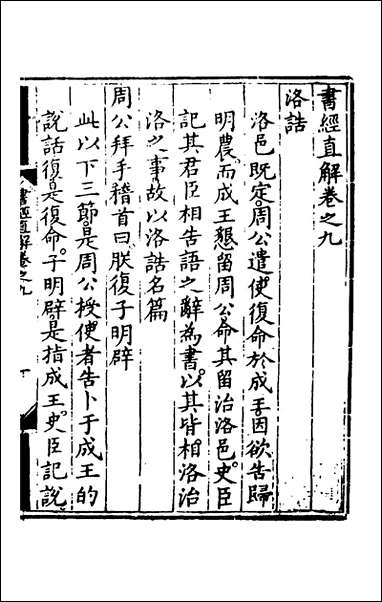 書經直解卷之九
洛誥
洛邑既定周公遣使復命於成王因欲告歸
明農而成王懇留周公命其留治洛邑史臣
記其君臣相告語之辭為書以其皆相洛治
洛之事故以洛誥名篇
周公拜手稽首曰朕復子明辟
此以下三節是周公授使者告卜于成王的
說話復是復命子明辟是指成王史臣記說
書經直解卷之九